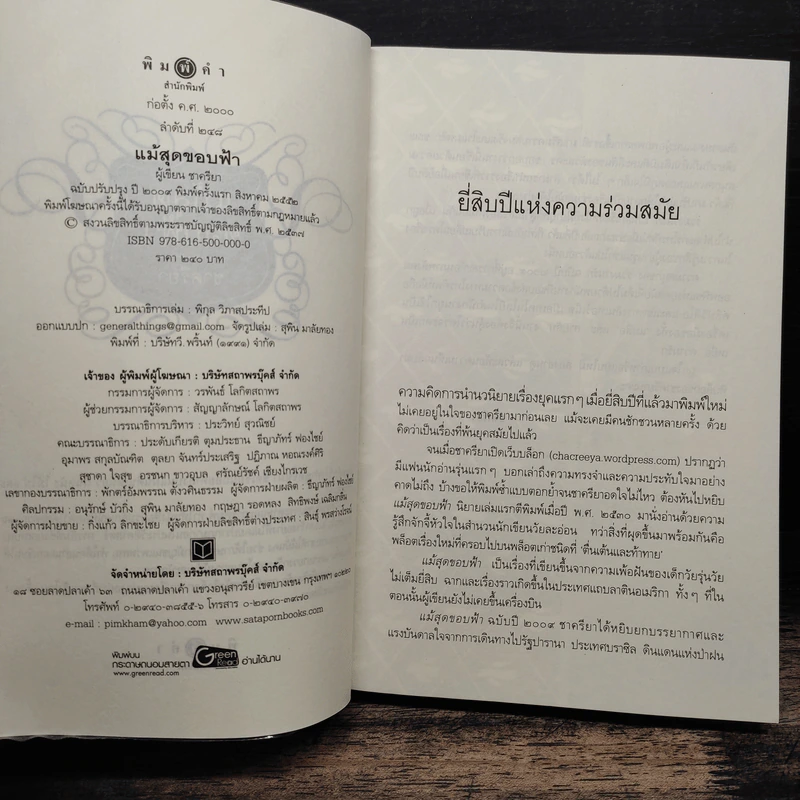 พิมพ์คำ
สำนักพิมพ์
ก่อตั้ง ค.ศ. ๒๐๐๐
ลำดับที่ ๒๔๘
แม้สุดขอบฟ้า
ผู้เขียน ชาครียา
ฉบับปรับปรุง ปี ๒๐๐๙ พิมพ์ครั้งแรก สิงหาคม ๒๕๕๒
พิมพ์โฆษณาครั้งนี้ได้รับอนุญาตจากเจ้าของลิขสิทธิ์ตามกฎหมายแล้ว
© สงวนลิขสิทธิ์ตามพระราชบัญญัติลิขสิทธิ์ พ.ศ. ๒๕๓๗
ISBN 978-616-500-000-0
ราคา ๒๔๐ บาท
บรรณาธิการเล่ม : พิกุล วิภาสประทีป
ออกแบบปก : generalthings@gmail.com จัดรูปเล่ม : สุพิน มาลัยทอง
พิมพ์ที่ : บริษัทวี.พริ้นท์ (๑๙๙๑) จำกัด
เจ้าของ ผู้พิมพ์ผู้โฆษณา : บริษัทสถาพรบุ๊คส์ จำกัด
กรรมการผู้จัดการ : วรพันธ์ โลกิตสถาพร
ผู้ช่วยกรรมการผู้จัดการ : สัญญาลักษณ์ โลกิตสถาพร
บรรณาธิการบริหาร : ประวิทย์ สุวณิชย์
คณะบรรณาธิการ : ประดับเกียรติ ตุมประธาน ธีญาภัทร์ ฟองไชย์
อุมาพร สกุลบัณฑิต ตุลยา จันทร์ประเสริฐ ปฏิภาณ หอณรงค์ศิริ
สุชาดา ใจสุข อรชนก ขาวอุบล ศรัณย์รัชต์ เชียงไกรเวช
เลขากองบรรณาธิการ : พักตร์อัมพรรณ ตั้งวศินธรรม ผู้จัดการฝ่ายผลิต : ธีญาภัทร์ ฟองไชย์
ศิลปกรรม : อนุรักษ์ บัวกิ่ง สุพิน มาลัยทอง กฤษฎา รอดหลง สิทธิพงษ์ เฉลิมกลิ่น
ผู้จัดการฝ่ายขาย : กิ่งแก้ว ลิกขะไชย ผู้จัดการฝ่ายลิขสิทธิ์ต่างประเทศ : สินธุ์ พรสว่างโรจน์
จัดจำหน่ายโดย : บริษัทสถาพรบุ๊คส์ จำกัด
๑๘ ซอยลาดปลาเค้า ๖๓ ถนนลาดปลาเค้า แขวงอนุสาวรีย์ เขตบางเขน กรุงเทพฯ ๑๐๒๒๐
โทรศัพท์ ๐-๒๙๔๐-๓๘๕๕-๖ โทรสาร ๐-๒๙๔๐-๓๙๗๐
e-mail : pimkham@yahoo.com www.satapornbooks.com
พิมพ์บน
กระดาษถนอมสายตา Green Read อ่านได้นาน
www.greenread.com
ยี่สิบปีแห่งความร่วมสมัย
ความคิดการนำนวนิยายเรื่องยุคแรกๆ เมื่อยี่สิบปีที่แล้วมาพิมพ์ใหม่
ไม่เคยอยู่ในใจของชาครียามาก่อนเลย แม้จะเคยมีคนชักชวนหลายครั้ง ด้วย
คิดว่าเป็นเรื่องที่พ้นยุคสมัยไปแล้ว
จนเมื่อชาครียาเปิดเว็บบล็อก (chacreeya.wordpress.com) ปรากฏว่า
มีแฟนนักอ่านรุ่นแรกๆ บอกเล่าถึงความทรงจำและความประทับใจมาอย่าง
คาดไม่ถึง บ้างขอให้พิมพ์ซ้ำแบบตอกย้ำจนชาครียาอดใจไม่ไหว ต้องหันไปหยิบ
แม้สุดขอบฟ้า นิยายเล่มแรกตีพิมพ์เมื่อปี พ.ศ. ๒๕๓๐ มานั่งอ่านด้วยความ
รู้สึกจั๊กจี้หัวใจในสำนวนนักเขียนวัยละอ่อน ทว่าสิ่งที่ผุดขึ้นมาพร้อมกันคือ
พล็อตเรื่องใหม่ที่ครอบไปบนพล็อตเก่าชนิดที่ 'ตื่นเต้นและท้าทาย'
แม้สุดขอบฟ้า เป็นเรื่องที่เขียนขึ้นจากความเพ้อฝันของเด็กวัยรุ่นวัย
ไม่เต็มยี่สิบ ฉากและเรื่องราวเกิดขึ้นในประเทศแถบลาตินอเมริกา ทั้งๆ ที่ใน
ตอนนั้นผู้เขียนยังไม่เคยขึ้นเครื่องบิน
แม้สุดขอบฟ้า ฉบับปี ๒๐๐๙ ชาครียาได้หยิบยกบรรยากาศและ
แรงบันดาลใจจากการเดินทางไปรัฐปารานา ประเทศบราซิล ดินแดนแห่งป่าฝน